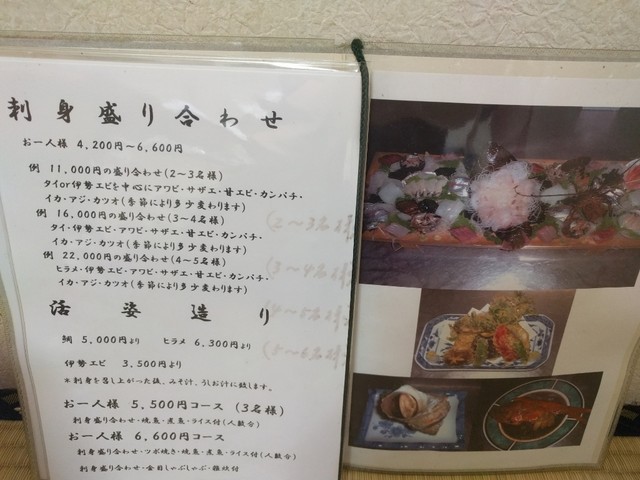 刺身盛り合わせ
お一人様 4,200円〜6,600円
例 11,000円の盛り合わせ(2〜3名様)
タイor伊勢エビを中心にアワビ・サザエ・甘エビ・カンパチ・
イカ・アジ・カツオ(季節により多少変わります)
例 16,000円の盛り合わせ(3〜4名様)
タイ・伊勢エビ・アワビ・サザエ・甘エビ・カンパチ・
イカ・アジ・カツオ(季節により多少変わります)
例 22,000円の盛り合わせ(4〜5名様)
ヒラメ・伊勢エビ・アワビ・サザエ・甘エビ・カンパチ・
イカ・アジ・カツオ(季節により多少変わります)
活姿造り
鯛 5,000円より ヒラメ 6,300円より
伊勢エビ 3,500円より
※刺身を召し上がった後、みそ汁、うしお汁に致します。
お一人様 5,500円コース (3名様)
刺身盛り合わせ・焼魚・煮魚・ライス付(人数分)
お一人様 6,600円コース
刺身盛り合わせ・ツボ焼き・焼魚・煮魚・ライス付(人数分)
刺身盛り合わせ・金目しゃぶしゃぶ・雑炊付
(2〜3名様
(3〜4名様
(4〜5名様
(5〜6名様